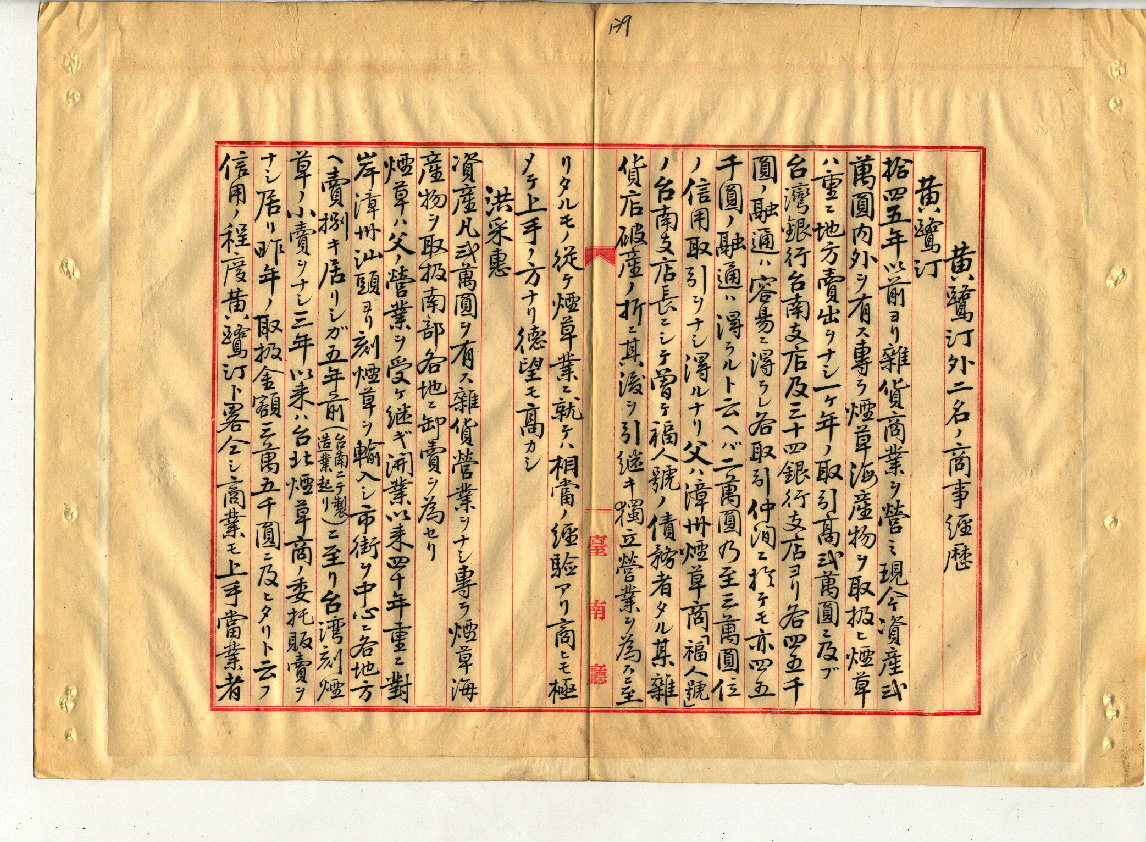 139
黄鷺汀外二名ノ商事経歴
黄鷺汀
拾四五年以前ヨリ雜貨商業ヲ營ミ現今資産弍
萬圓内外ヲ有ス專ラ煙草海産物ヲ取扱ヒ煙草
ハ重ニ地方賣出ヲナシ一ケ年ノ取引高弍萬圓ニ及ブ
台灣銀行台南支店及三十四銀行支店ヨリ各四五千
圓ノ融通ハ容易ニ得ラレ各取引仲間ニ於テモ亦四五
千圓ノ融通ハ得ラルト云ヘバ二萬圓乃至三萬圓位
ノ信用取引ヲナシ得ルナリ父ハ漳州煙草商「福人號」
ノ台南支店長ニシテ曾テ福人號ノ債務者タル某雜
貨店破産ノ折ニ其後ヲ引継キ獨立營業ヲ為スニ至
リタルモノ従テ煙草業ニ就テハ相當ノ経驗アリ商ヒモ極
メテ上手ノ方ナリ徳望モ高カシ
洪采惠
資産凡弍萬圓ヲ有ス雜貨營業ヲナシ專ラ煙草海
産物ヲ取扱南部各地ニ卸賣ヲ為セリ
煙草ハ父ノ營業ヲ受ケ継ギ開業以来四十年重ニ對
岸漳州汕頭ヨリ刻煙草ヲ輸入シ市街ヲ中心ニ各地方
ヘ賣捌キ居リシガ五年前(台南ニテ製造業起リ)ニ至リ台湾刻煙
草ノ小賣ヲナシ三年以来ハ台北煙草商ノ委托販賣ヲ
ナシ居リ昨年ノ取扱金額三萬五千圓ニ及ヒタリト云フ
信用ノ程度黄鷺汀ト畧仝シ商業モ上手當業者
臺南廳